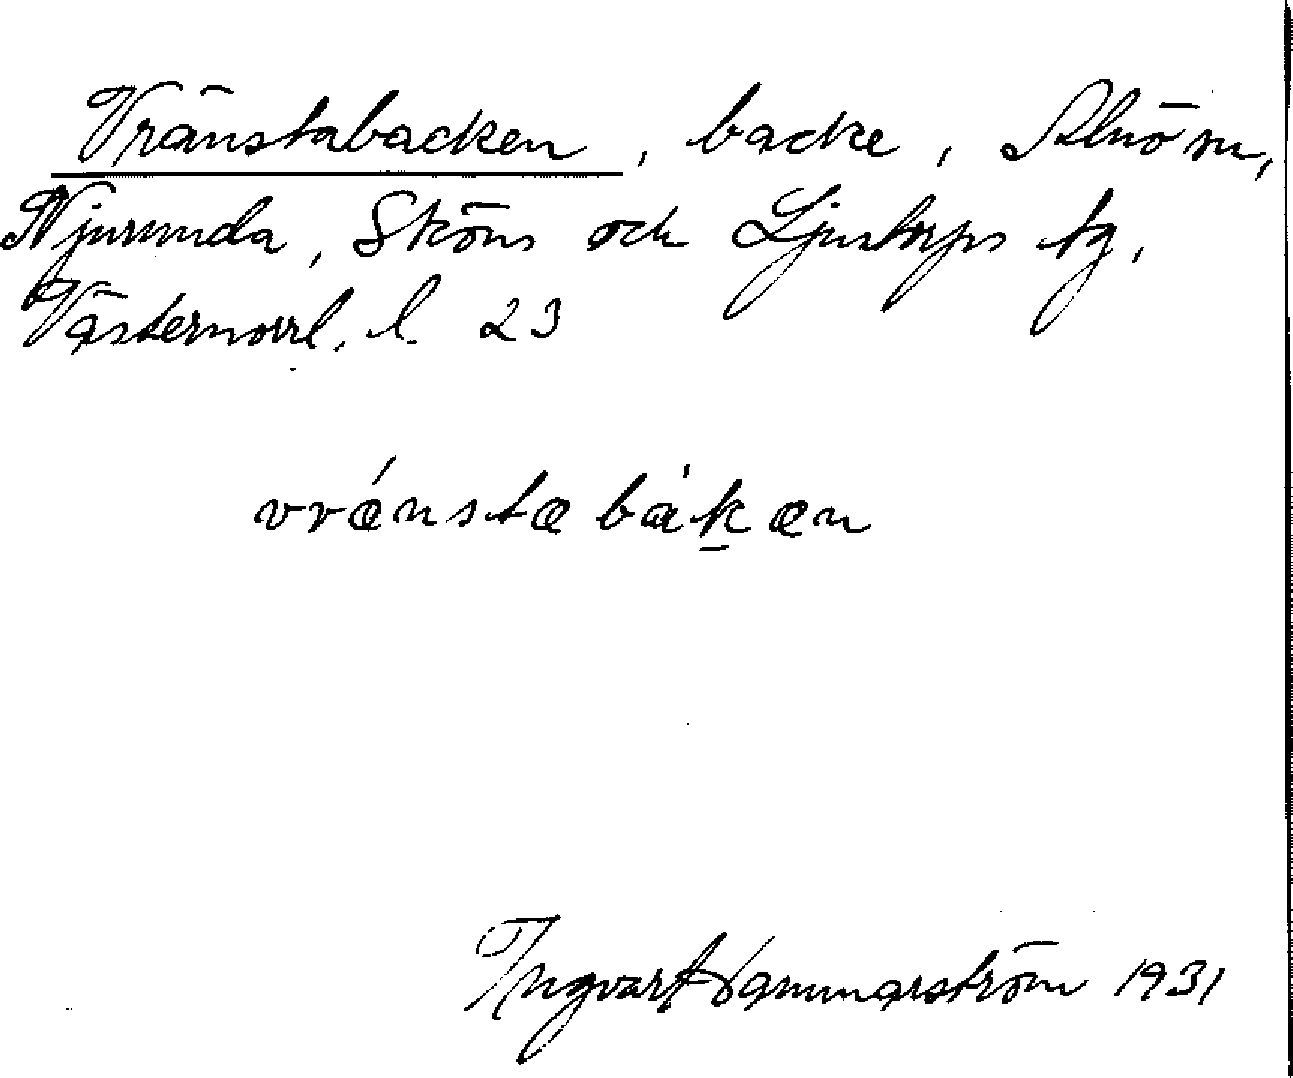 Vränstabacken, backe, Alnö sn,
Njurunda, Sköns och Ljustorps tg,
Västernorrl. l. 23
vrǽnstabàk̠an
Ingvart Hammarström 1931